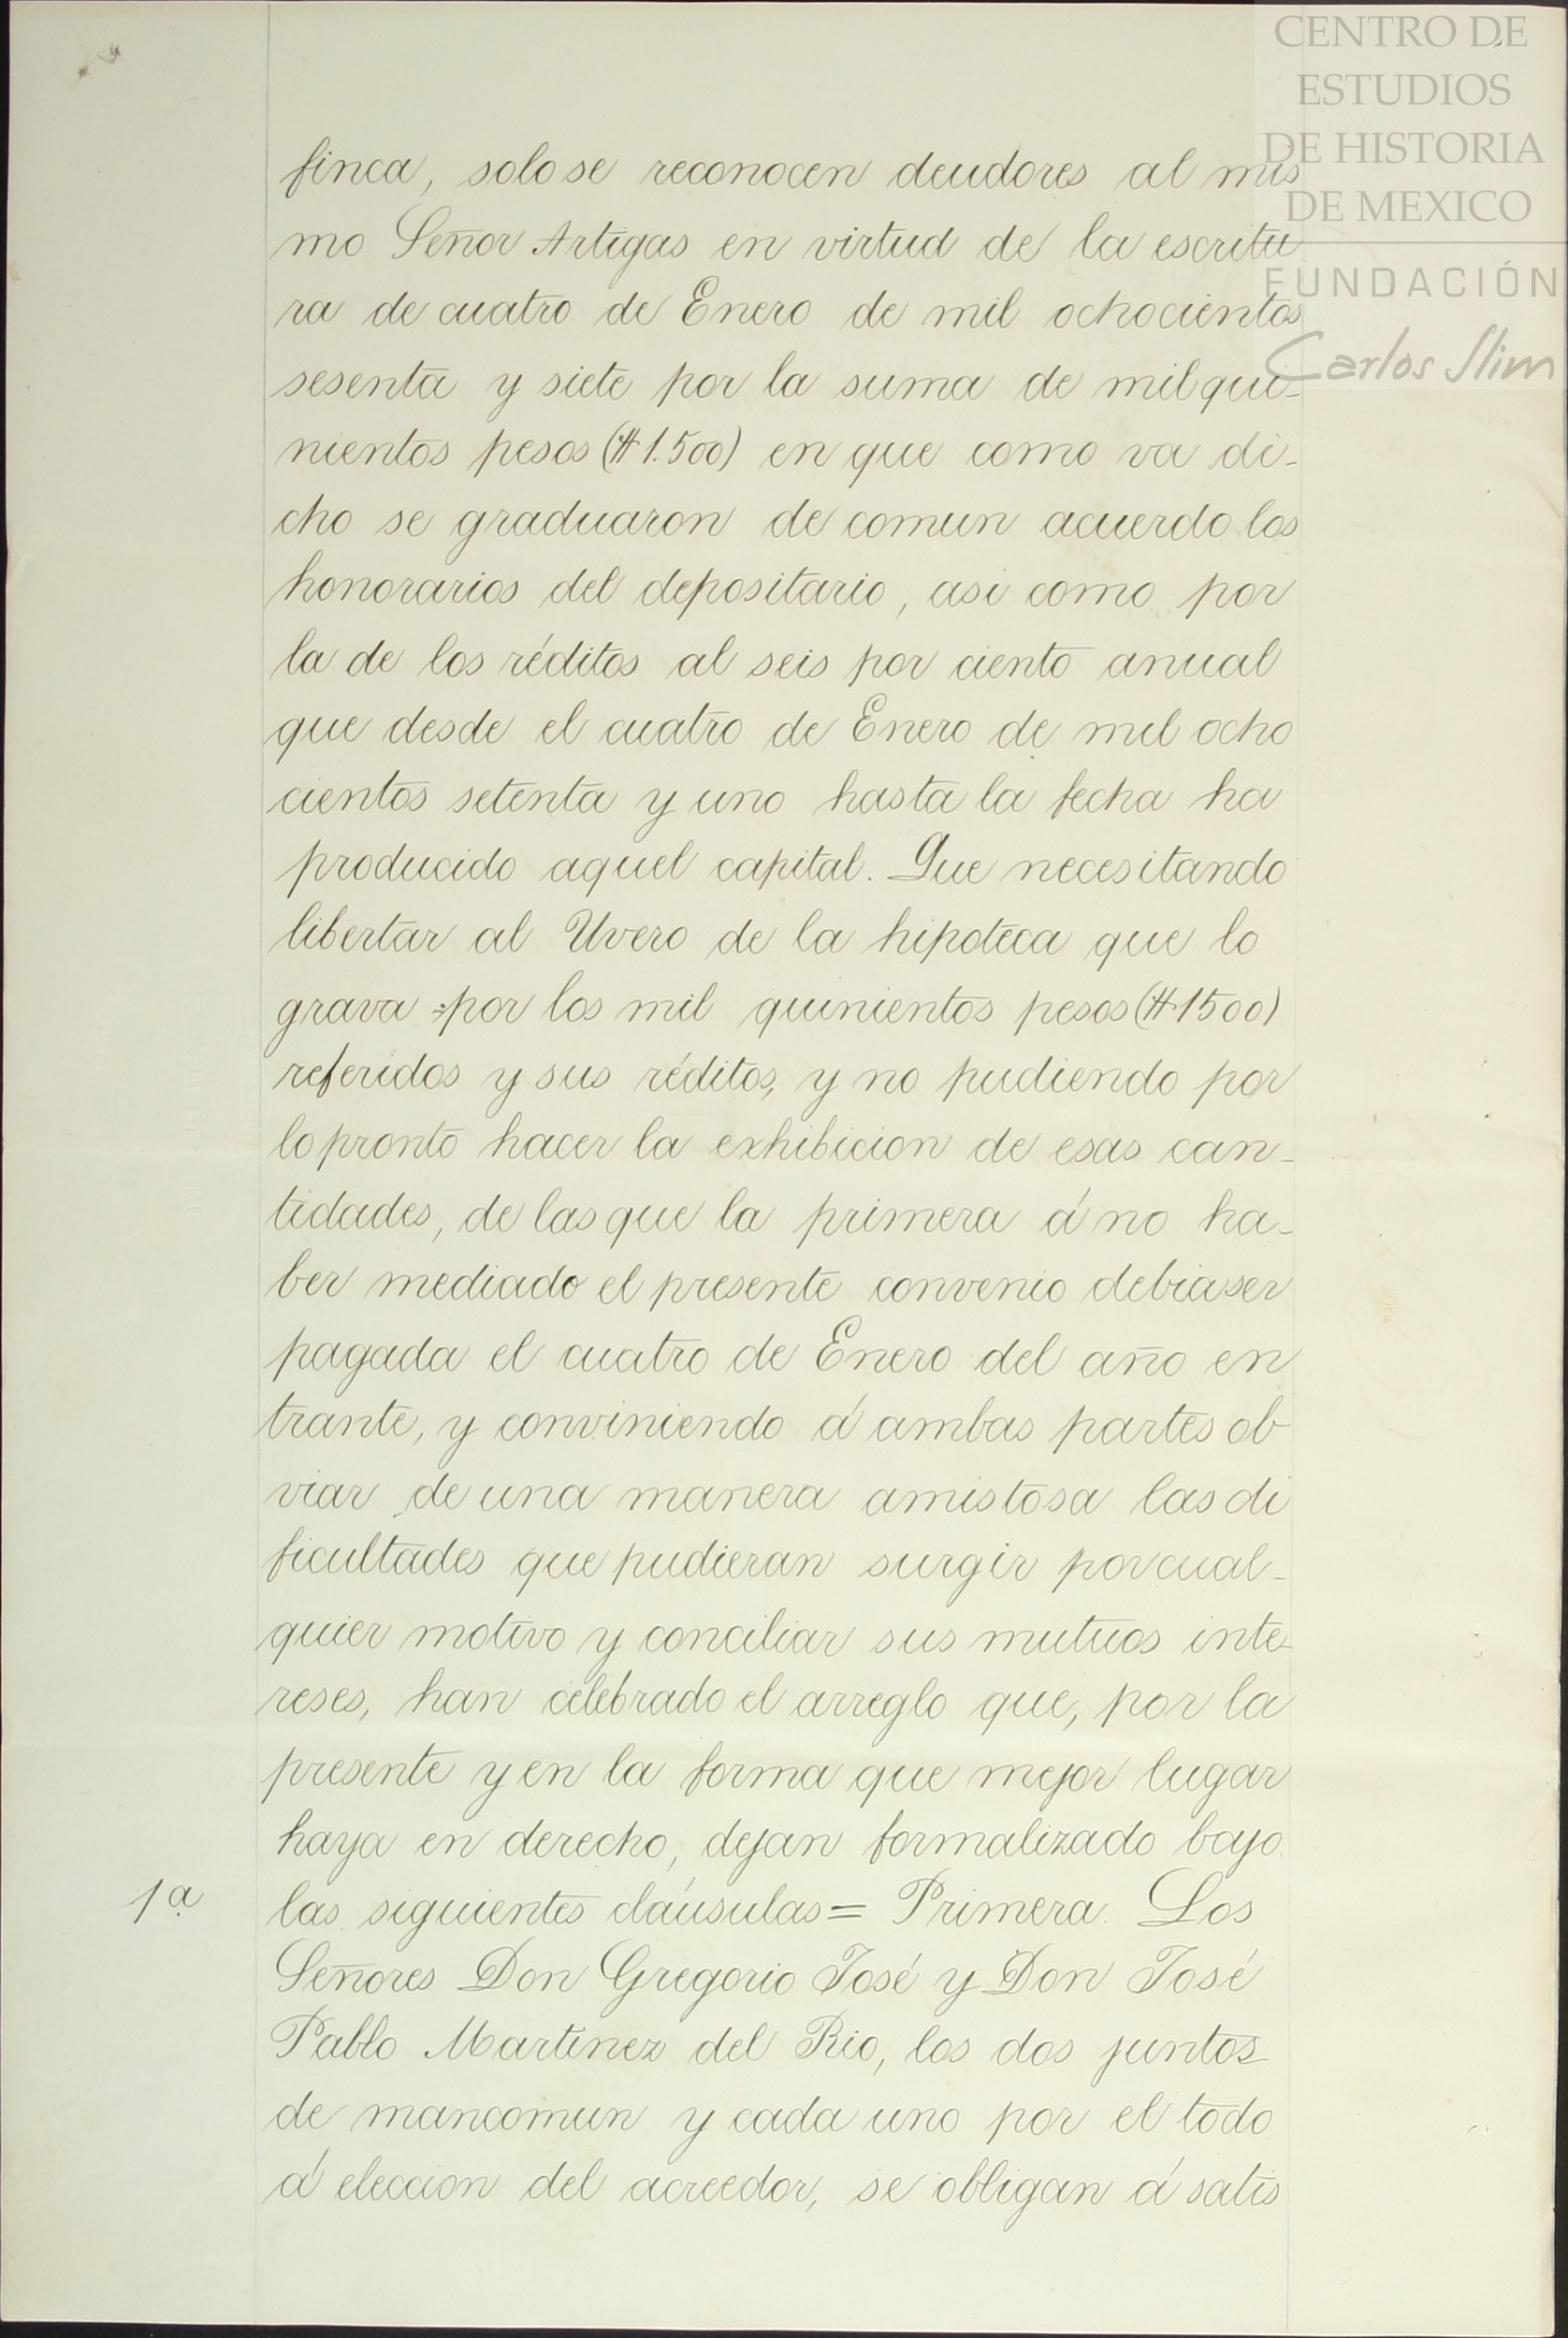 CENTRO DE
ESTUDIOS
DE HISTORIA
DE MEXICO
FUNDACIÓN
Carlos Slim
finca, solo se reconocen deudores al mis
mo Señor Artigas en virtud de la escritu
ra de cuatro de Enero de mil ochocientos
sesenta y siete por la suma de mil qui-
nientos pesos ($1.500) en que como va di-
cho se graduaron de comun acuerdo los
honorarios del depositario, asi como por
la de los réditos al seis por ciento anual
que desde el cuatro de Enero de mil ocho
cientos setenta y uno hasta la fecha ha
producido aquel capital. Que necesitando
libertar al Uvero de la hipoteca que lo
grava por los mil quinientos pesos ($1500)
referidos y sus réditos, y no pudiendo por
lo pronto hacer la exhibicion de esas can-
tidades, de las que la primera á no ha-
ber mediado el presente convenio debia ser
pagada el cuatro de Enero del año en
trante, y conviniendo á ambas partes ob
viar de una manera amistosa las di
ficultades que pudieran surgir por cual-
quier motivo y conciliar sus mutuos inte-
reses, han celebrado el arreglo que, por la
presente y en la forma que mejor lugar
haya en derecho, dejan formalizado bajo
1ª las siguientes cláusulas = Primera. Los
Señores Don Gregorio José y Don José
Pablo Martinez del Rio, los dos juntos
de mancomun y cada uno por el todo
á eleccion del acreedor, se obligan á satis